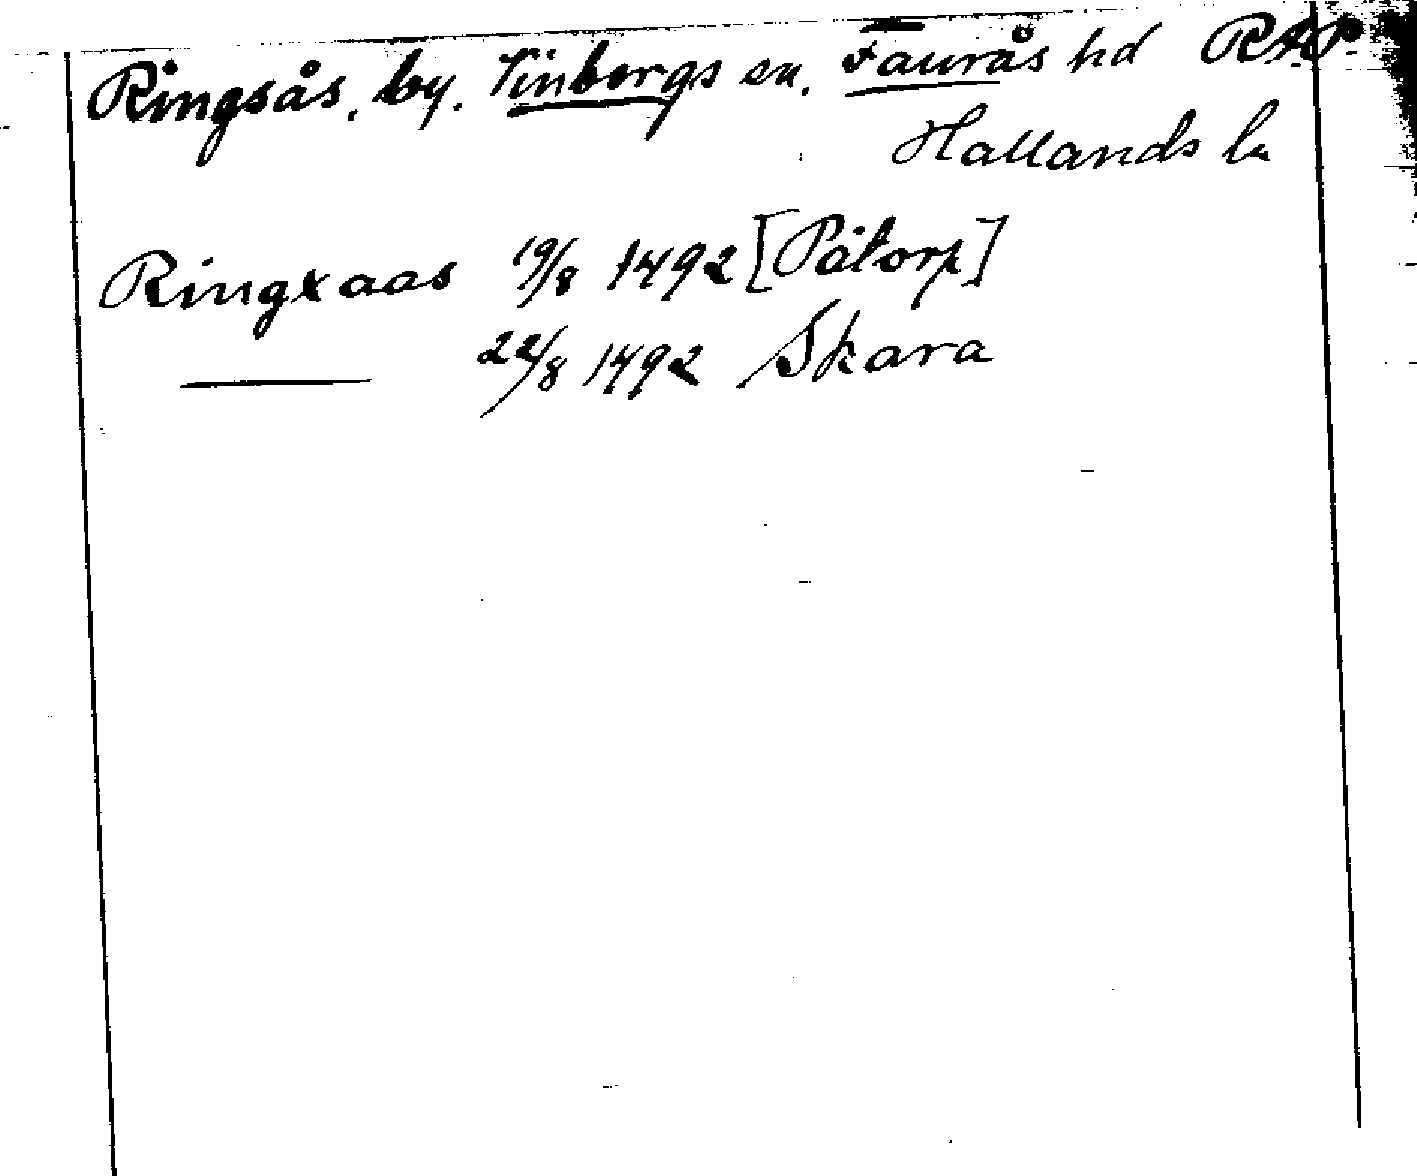 Ringsås, by. Vinbergs sn. Faurås hd RAP
Hallands ln
Ringxaas 19/8 1492 [Påtorp]
——— 22/8 1492 Skara